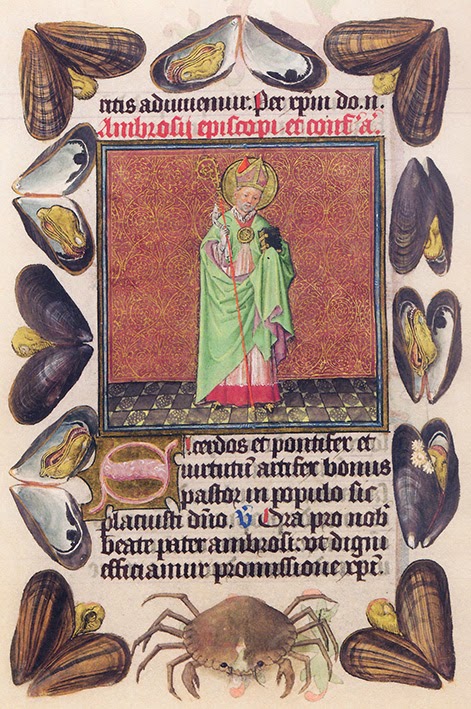 ritis adiuuemur. Per xp̄m do. n.
Ambrosij episcopi et conf. a.
Sacerdos et pontifex et
uirtutū artifex bonus
pastor in populo sic
placuisti dn̄o. ℣ Ora pro nob̄
beate pater ambrosi: vt digni
efficiamur promissione xp̄i